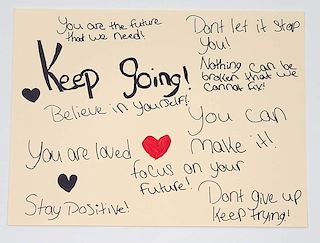 You are the future
that we need!
Dont let it stop
You!
Keep going!
Nothing can be
broken that we
cannot fix!
Believe in Yourself!
You can
make it!
You are loved
focus on your
Future!
Stay Positive!
Dont give up
Keep Trying!